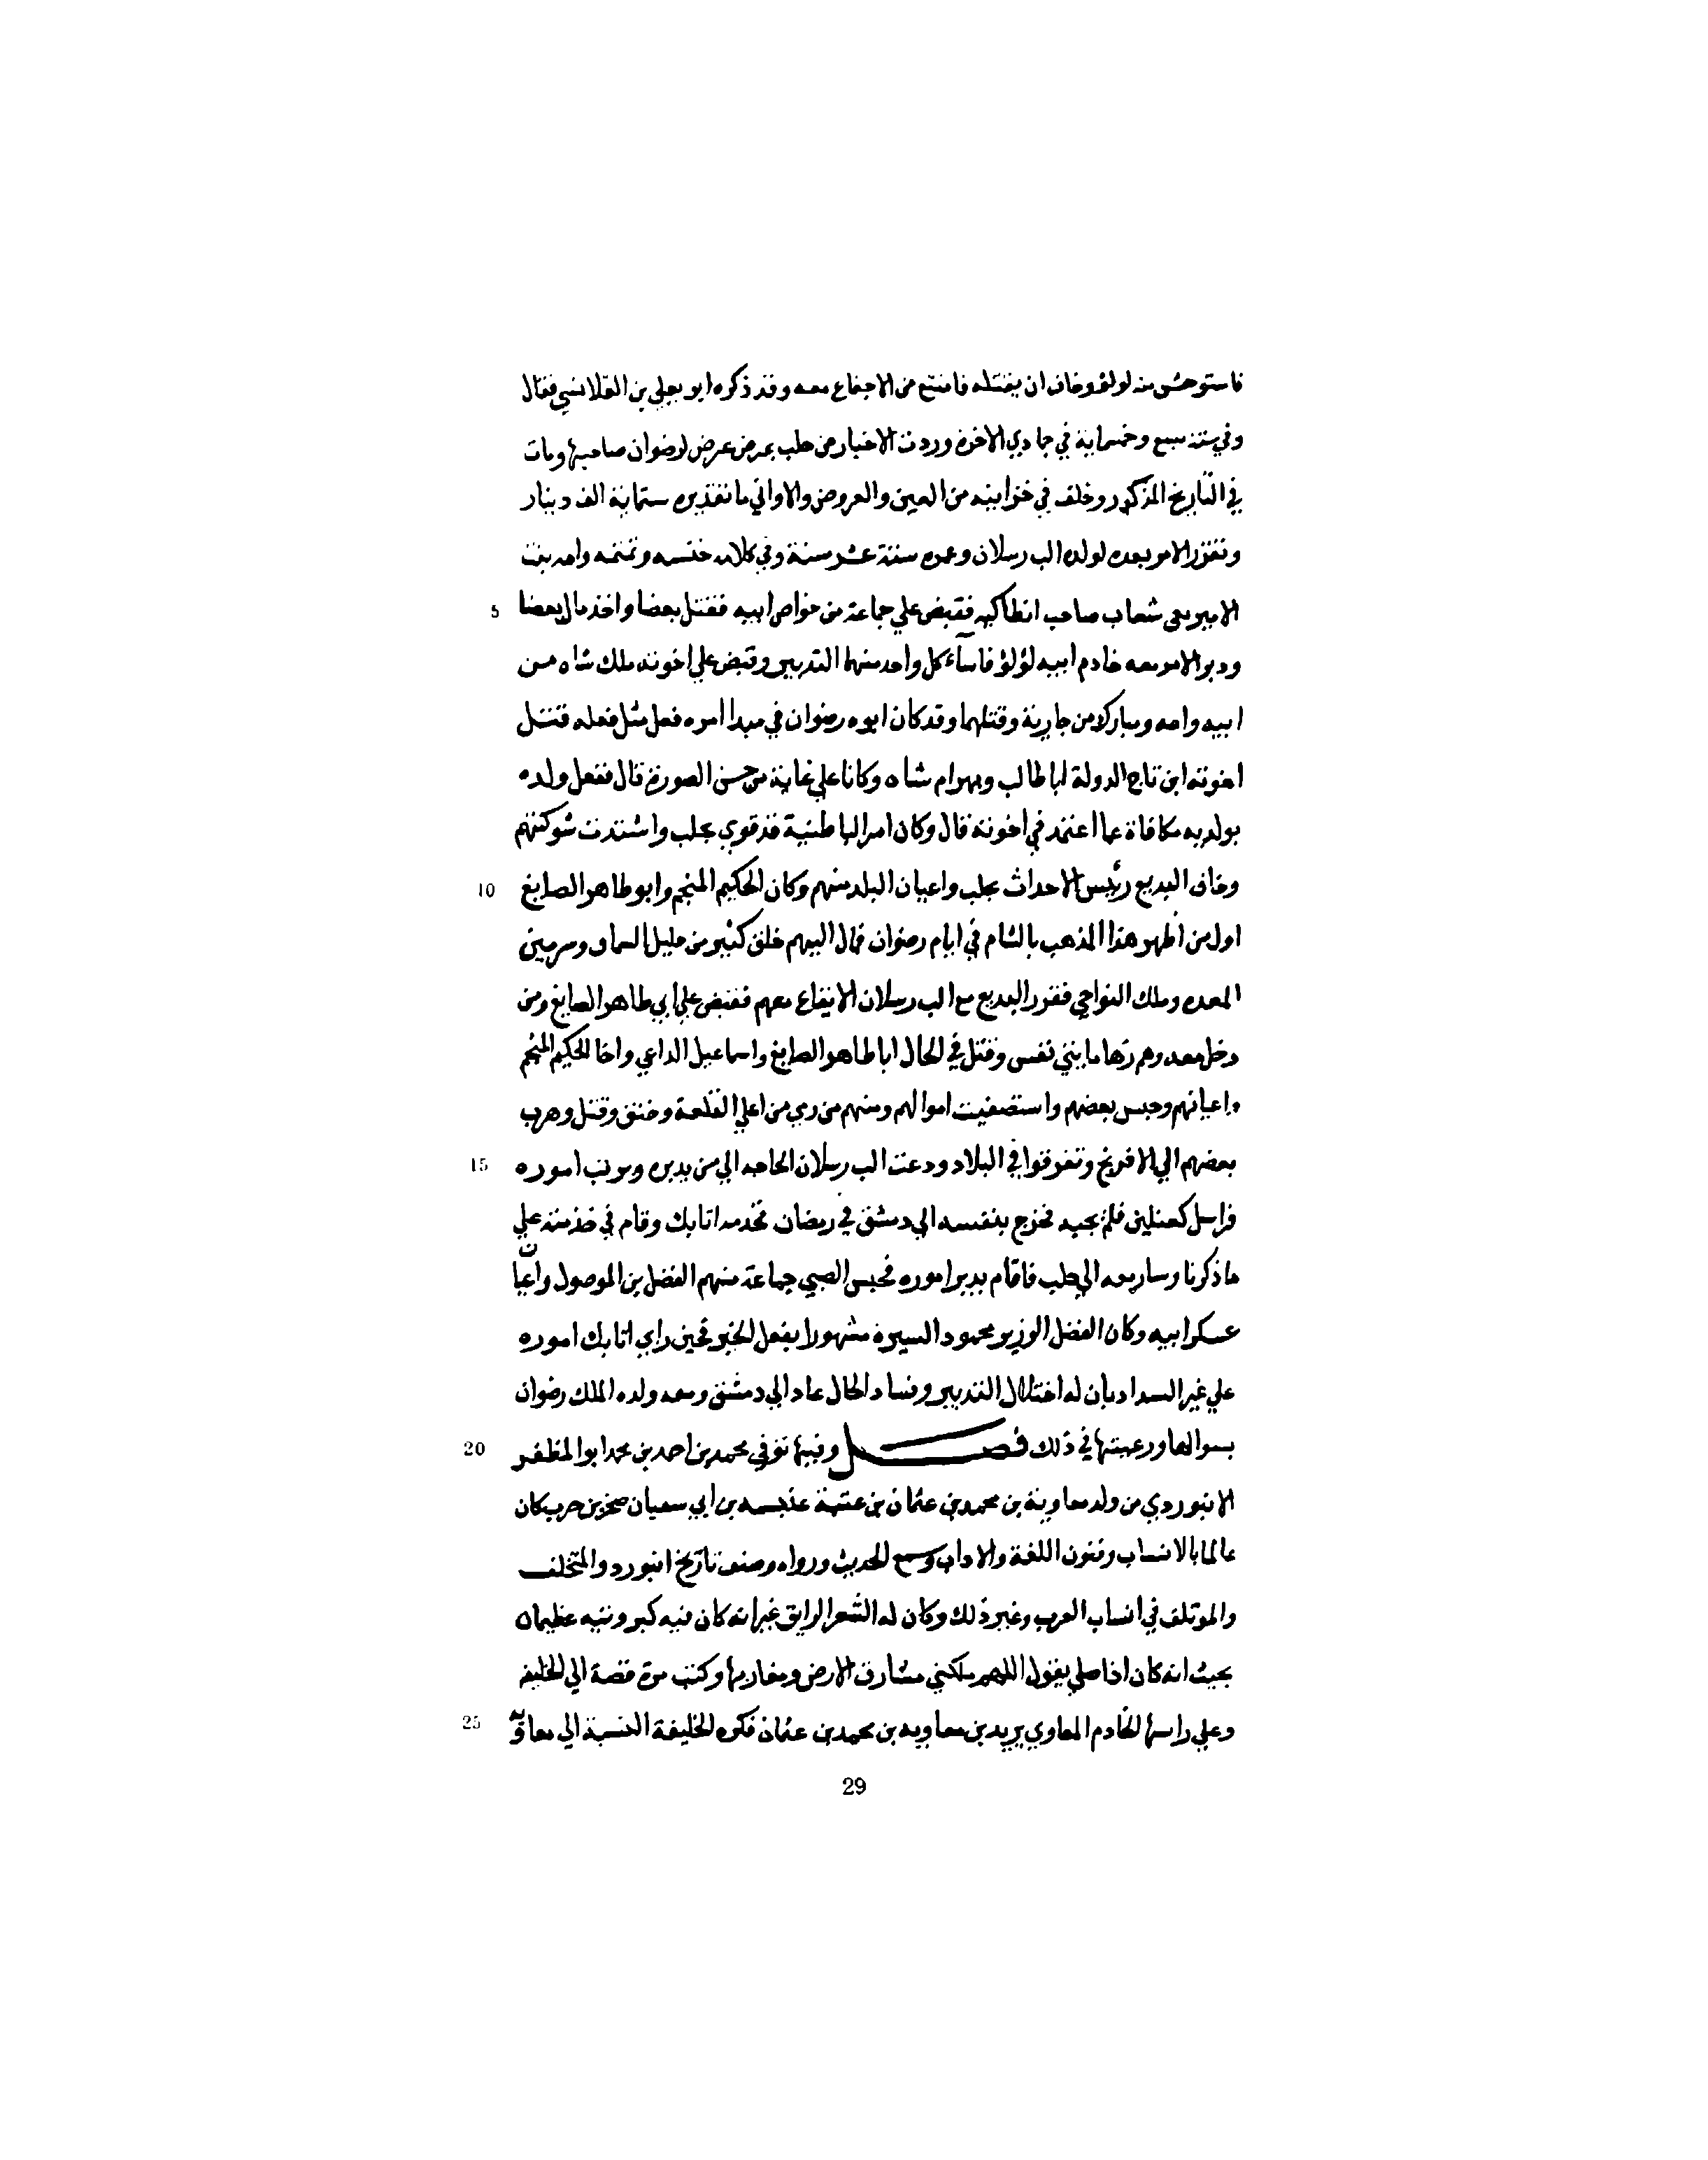 فاستوحش منه لولؤ وخاف ان يقتله فامتنع من الاجتماع معه وقد ذكره ابو يعلي بن القلانسي فقال
وفي سنة سبع وخمسماية في جمادي الاخرة وردت الاخبار من حلب بمرض عرض لرضوان صاحبها ومات
في التاريخ المذكور وخلف في خزاينه من العين والعروض والاواني ما تقديره ستماية الف دينار
وتقرر الامر بعده لولده الب رسلان وعمره ستة عشر سنة وفي كلامه حبسه وتمتمه وامه بنت
5 الامير يغي شعاب صاحب انطاكيه فقبض علي جماعة من خواص ابيه فقتل بعضا واخذ مال بعضا
ودبر الامر معه خادم ابيه لؤلؤ فاساء كل واحد منهما التدبير وقبض علي اخوته ملك شاه مـن
ابيه وامه ومباركا من جارية وقتلهما وقد كان ابوه رضوان في مبدا امره فعل مثل فعله قتـل
اخوته ابن تاج الدولة ابا طالب وبهرام شاه وكانا علي غاية من حسن الصورة قال ففعل ولده
بولديه مكافاة عما اعتمد في اخوته قال وكان امر الباطنية قد قوي بحلب واشتدت شوكتهم
10 وخاف البديع رئيس الاحداث بحلب واعيان البلد منهم وكان الحكيم المنجم وابو طاهر الصايغ
اول من اظهر هذا المذهب بالشام في ايام رضوان فمال اليهم خلق كثير من جليل السماق وسرمين
المعره وملك النواحي فقرر البديع مع الب رسلان الايقاع معهم فقبض علي ابي طاهر الصايغ ومن
دخل معه وهم زها مايتي نفس وقتل في الحال ابا طاهر الصايغ واسماعيل الداعي واخا الحكيم المنجم
واعيانهم وحبس بعضهم واستصفيت اموالهم ومنهم من رمي من اعلي القلعة وخنق وقتل وهرب
15 بعضهم الي الافرنج وتفرقوا في البلاد ودعت الب رسلان الحاجه الي من يدبره ويرتب اموره
فراسل كمتكين فلم يجبه فخرج بنفسه الي دمشق في رمضان فخدمه اتابك وقام في خدمته علي
ما ذكرنا وسار معه الي حلب فاقام يدبر اموره فحبس الصبي جماعة منهم الفضل بن الموصول واعيان
عسكر ابيه وكان الفضل الوزير محمود السيرة مشهورا بفعل الخير فحين راي اتابك اموره
علي غير السداد بان له اختلال التدبير وفساد الحال عاد الي دمشق ومعه ولده الملك رضوان
20 بسوالها ورغبتها في ذلك فصـــل وفيها توفي محمد بن احمد بن محمد ابو المظفر
الابيوردي من ولد معاوية بن محمد بن عثمان بن عتبة عنبسه بن ابي سفيان صخر بن حرب كان
عالما بالانساب وفنون اللغة والاداب وسمع الحديث ورواه وصنف تاريخ ابيورد والمختلف
والموتلف في انساب العرب وغير ذلك وكان له الشعر الرايق غير انه كان فيه كبر وتيه عظيمان
بحيث انه كان اذا صلي يقول اللهم ملكني مشارق الارض ومغاربها وكتب مرة قصة الي الخليفه
25 وعلي راسها الخادم المعاوي يريد بن معاويه بن محمد بن عثمان فكره الخليفة النسبة الي معاوية
29